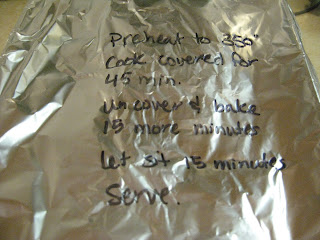 Preheat to 350°
Cook covered for
45 min.
uncover & bake
15 more minutes
let sit 15 minutes
Serve.